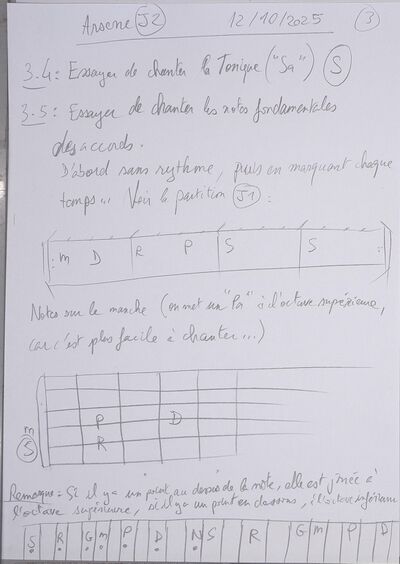 Arsene J2 12/10/2025 3
3.4 : Essayer de chanter la Tonique ("Sa") S
3.5 : Essayer de chanter les notes fondamentales
des accords.
D'abord sans rythme, puis en marquant chaque
temps... Voir la partition J1 :
m D R P S S
Notes sur le manche (on met un "Pa" à l'octave supérieure,
car c'est plus facile à chanter...)
P D
m
S R
Remarque : Si il y a un point au dessus de la note, elle est jouée à
l'octave supérieure, si il y a un point en dessous, à l'octave inférieure
S R G m P D N S R G m P D